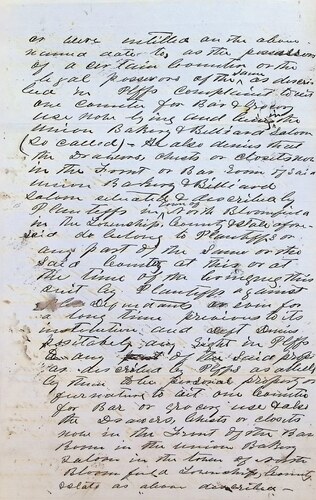 or were entitled on the above
named date to, as the possessors
of a certain Counter or the
legal possessors of the same as descri
bed in Plffs Complaint to wit
one counter for Bar & Grocery
use now lying and being in the
Union Bakery & Billiard Saloon
(so called) - He also denies that
the Drawers, chists or closets now
in the Front or Bar Room of said
Union Bakery & Billiard
Saloon situated & described by
Plaintiffs in North Bloomfield
in the Township, County & State afore-
said as belonging to Plaintiffs or
any part of the Same or the
Said Counter, at this or at
the time of the bringing this
suit by Plaintiffs against
Defendants or even for
a long time previous to its
institution and Deft Denies
positively any right in Plffs
to any of the said props
as described by Plffs as alleged
by them to be personal property or
furniture to wit one Counter
for Bar or grocery use & also
the Drawers, chists or closets
now in the Front of the Bar
Room in the Union Bakery
Saloon in the town of North
Bloomfield Township, County
State as above described -